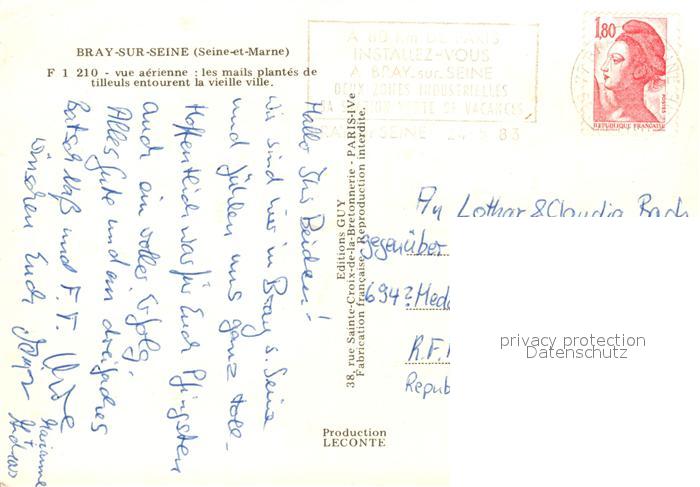 BRAY-SUR-SEINE (Seine-et-Marne)
F 1 210 - vue aérienne : les mails plantés de
tilleuls entourent la vieille ville.
A 80 Km DE PARIS
INSTALLEZ-VOUS
A BRAY.sur.SEINE
DEUX ZONES INDUSTRIELLES
DE VACANCES
SEINE 24-5 83
1,80
POSTES
REPUBLIQUE FRANÇAISE
Hallo Ihr Beiden!
Wir sind hier in Bray s. Seine
und fühlen uns ganz toll -
Hoffentlich war für Euch Pfingsten
auch ein voller Erfolg.
Alles Gute und ein dreifaches
und F.F.
wünschen Euch
Marianne
+
Andreas
Editions GUY
38, rue Sainte-Croix-de-la-Bretonnerie - PARIS-IVe
Fabrication française - Reproduction interdite.
An Lothar & Claudia
gegenüber
694? Med
R.F.
Repub
privacy protection
Datenschutz
Production
LECONTE